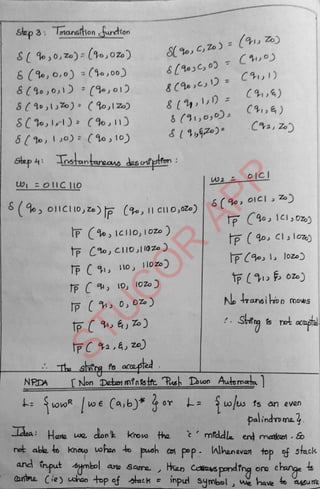 Step 3 : Transition function
δ ( q₀, 0, Z₀) = (q₀, 0Z₀)
δ ( q₀, 0, 0) = (q₀, 00)
δ ( q₀, 0, 1) = (q₀, 01)
δ ( q₀, 1, Z₀) = (q₀, 1Z₀)
δ ( q₀, 1, 1) = (q₀, 11)
δ ( q₀, 1, 0) = (q₀, 10)
δ( q₀, C, Z₀) = (q₁, Z₀)
δ( q₀, C, 0) = (q₁, 0)
δ( q₀, C, 1) = (q₁, 1)
δ ( q₁, 1, 1) = (q₁, ε)
δ ( q₁, 0, 0) = (q₁, ε)
δ ( q₁, ε, Z₀) = (q₂, Z₀)
Step 4 : Instantaneous description :
w₁ = 011C110
δ ( q₀, 011C110, Z₀) ⊢ (q₀, 11C110, 0Z₀)
⊢ (q₀, 1C110, 10Z₀)
⊢ (q₀, C110, 110Z₀)
⊢ ( q₁, 110, 110Z₀)
⊢ ( q₁, 10, 10Z₀)
⊢ ( q₁, 0, 0Z₀)
⊢ ( q₁, ε, Z₀)
⊢ ( q₂, ε, Z₀)
∴ The string is accepted.
w₂ = 01C1
δ ( q₀, 01C1, Z₀)
⊢ ( q₀, 1C1, 0Z₀)
⊢ ( q₀, C1, 10Z₀)
⊢ (q₁, 1, 10Z₀)
⊢ ( q₁, ε, 0Z₀)
No transition moves
∴ String is not accepted
STUCOR APP
NPDA [ Non Deterministic Push Down Automata ]
L = { wwᴿ / w ∈ (a,b)* } or L = { w/w is an even
palindrome }.
Idea : Here we don't know the 'c' middle end marker. So
not able to know when to push or pop. Whenever top of stack
and input symbol are same, then corresponding one change to
(ie) when top of stack = input symbol, we have to assume